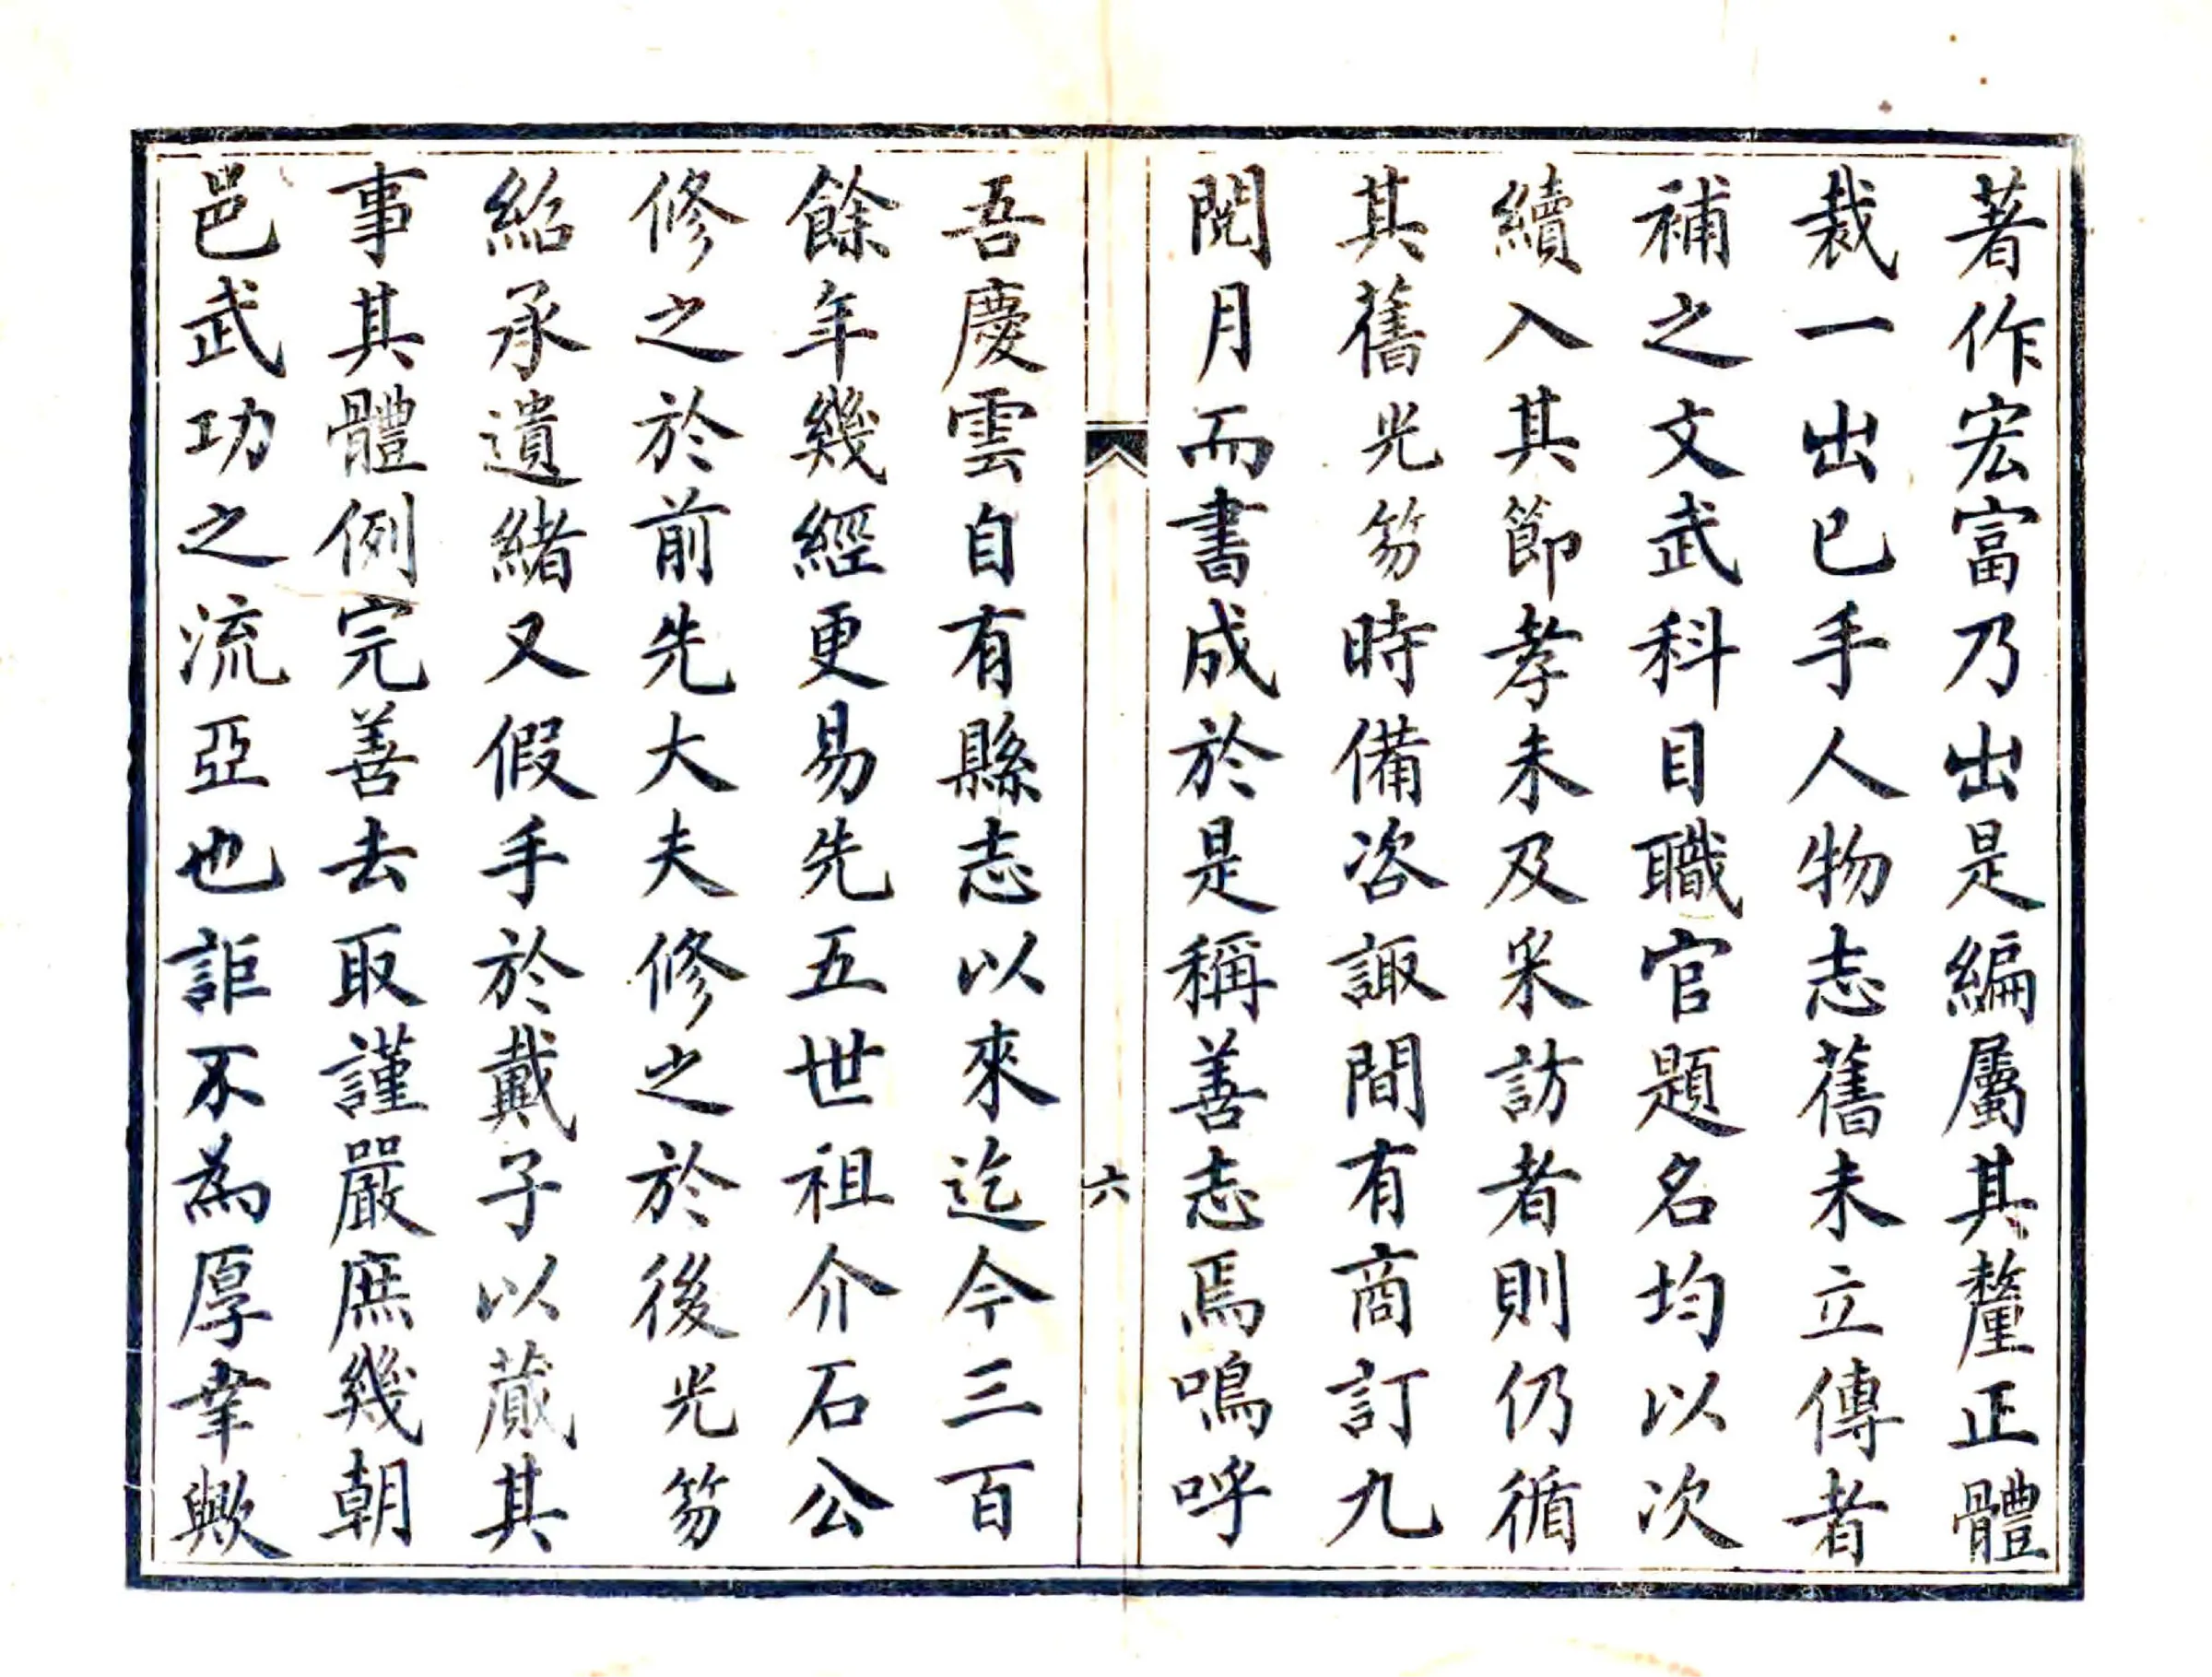 著作宏富乃出是編屬其釐正體
裁一出已手人物志舊未立傳者
補之文武科目職官題名均以次
續入其節孝未及采訪者則仍循
其舊光笏時備咨諏間有商訂九
閱月而書成於是稱善志焉嗚呼
六
吾慶雲自有縣志以來迄今三百
餘年幾經更易先五世祖介石公
修之於前先大夫修之於後光笏
紹承遺緒又假手於戴子以蕆其
事其體例完善去取謹嚴庶幾朝
邑武功之流亞也詎不為厚幸歟